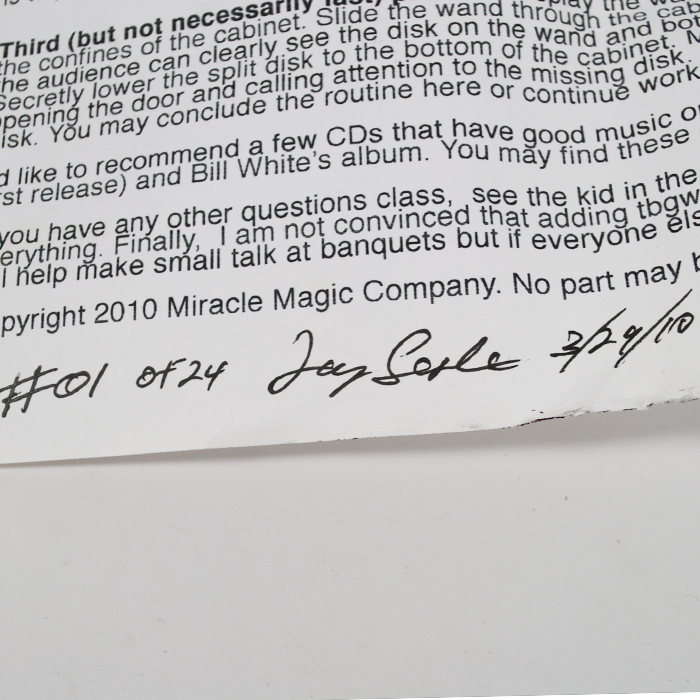 Third (but not necessarily last)
the confines of the cabinet. Slide the wand through the cab
he audience can clearly see the disk on the wand and bot
Secretly lower the split disk to the bottom of the cabinet.
pening the door and calling attention to the missing disk.
isk. You may conclude the routine here or continue work
d like to recommend a few CDs that have good music o
st release) and Bill White's album. You may find these
you have any other questions class, see the kid in the
erything. Finally, I am not convinced that adding tbgw
l help make small talk at banquets but if everyone els
pyright 2010 Miracle Magic Company. No part may b
#01 of 24 Jay 3/29/10